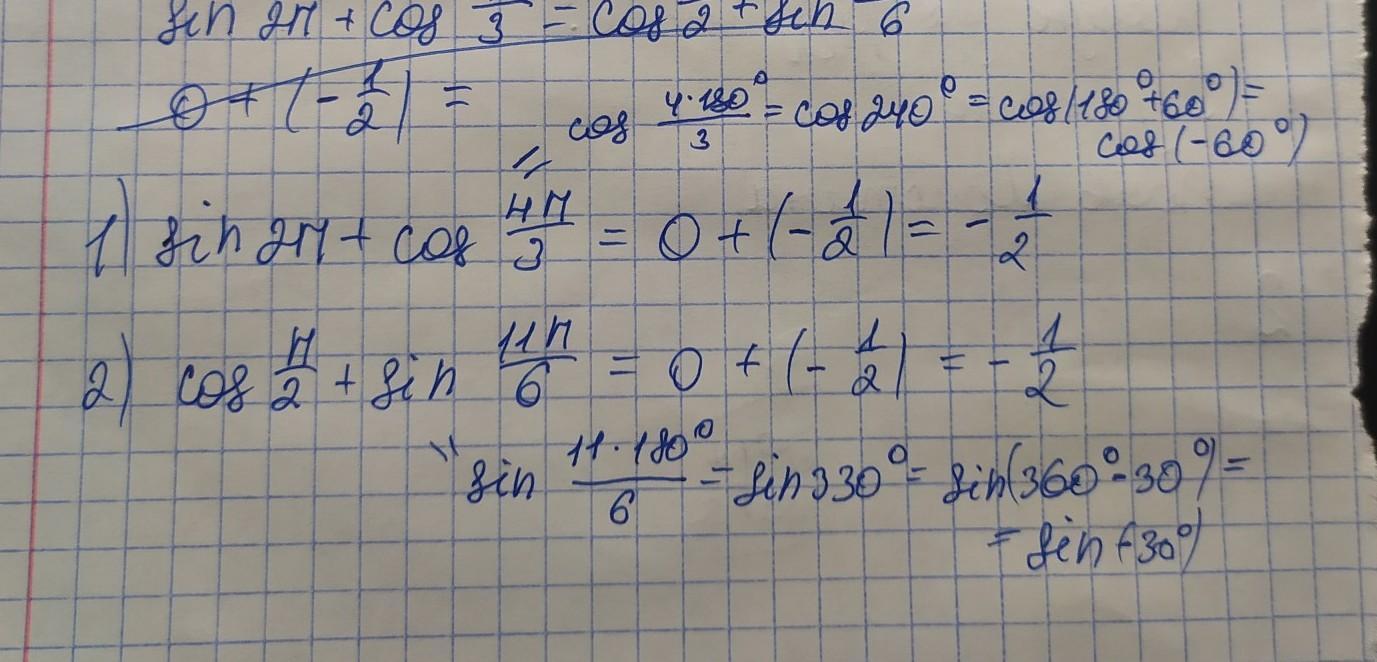 sin 2π + cos /3 = cos /2 + sin /6
0 + (-1/2) =
cos 4·180°/3 = cos 240° = cos(180°+60°) =
cos(-60°)
1) sin 2π + cos 4π/3 = 0 + (-1/2) = -1/2
2) cos π/2 + sin 11π/6 = 0 + (-1/2) = -1/2
sin 11·180°/6 = sin 330° = sin(360°-30°) =
= sin(-30°)